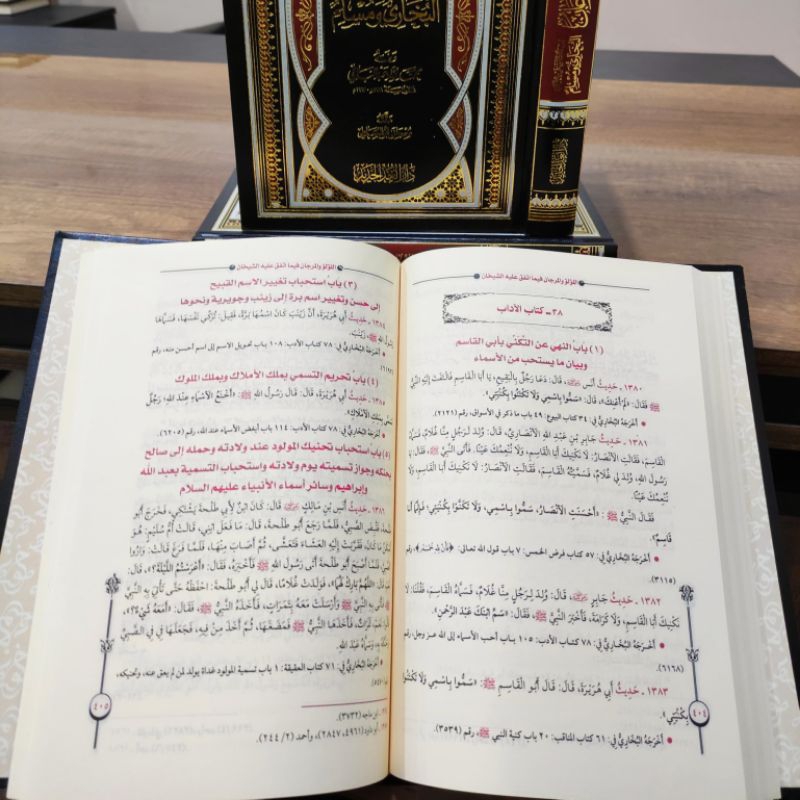 البخاري ومسلم
دار الغد الجديد
البخاري ومسلم
اللؤلؤ والمرجان فيما اتفق عليه الشيخان
٣٨ - كتاب الآداب
(١) باب النهي عن التكني بأبي القاسم
وبيان ما يستحب من الأسماء
١٣٨٠ - حديث أنس رضي الله عنه، قال: دَعَا رَجُلٌ بِالْبَقِيعِ، يَا أَبَا الْقَاسِمِ فَالْتَفَتَ إِلَيْهِ النَّبِيُّ
ﷺ فَقَالَ: «لَمْ أَعْنِكَ»، قَالَ: «سَمُّوا بِاسْمِي وَلَا تَكْتَنُوا بِكُنْيَتِي».
• أخرجه البخاري في: ٣٤ كتاب البيوع: ٤٩ باب ما ذكر في الأسواق، رقم (٢١٢١)
١٣٨١ - حديث جابر بن عبد الله الأنصاري، قَالَ: وُلِدَ لِرَجُلٍ مِنَّا غُلَامٌ، فَسَمَّاهُ
الْقَاسِمَ، فَقَالَتِ الْأَنْصَارُ: لَا نَكْنِيكَ أَبَا الْقَاسِمِ، وَلَا نُنْعِمُكَ عَيْنًا، فَأَتَى النَّبِيَّ ﷺ فَقَالَ: يَا
رَسُولَ اللهِ، وُلِدَ لِي غُلَامٌ، فَسَمَّيْتُهُ الْقَاسِمَ، فَقَالَتِ الْأَنْصَارُ: لَا نَكْنِيكَ أَبَا الْقَاسِمِ، وَلَا
نُنْعِمُكَ عَيْنًا.
فَقَالَ النَّبِيُّ ﷺ: «أَحْسَنَتِ الْأَنْصَارُ، سَمُّوا بِاسْمِي، وَلَا تَكَنَّوْا بِكُنْيَتِي؛ فَإِنَّمَا أَنَا
قَاسِمٌ».
• أخرجه البخاري في: ٥٧ كتاب فرض الخمس: ٧ باب قول الله تعالى: ﴿فأن لله خمسه﴾، رقم
(٣١١٥)
١٣٨٢ - حديث جابر رضي الله عنه، قَالَ: وُلِدَ لِرَجُلٍ مِنَّا غُلَامٌ، فَسَمَّاهُ الْقَاسِمَ، فَقُلْنَا: لَا
نَكْنِيكَ أَبَا الْقَاسِمِ، وَلَا كَرَامَةَ، فَأَخْبَرَ النَّبِيَّ ﷺ، فَقَالَ: «سَمِّ ابْنَكَ عَبْدَ الرَّحْمَنِ».
• أخرجه البخاري في: ٧٨ كتاب الأدب: ١٠٥ باب أحب الأسماء إلى الله عز وجل، رقم
(٦١٦٨)
١٣٨٣ - حديث أبي هريرة، قَالَ: قَالَ أَبُو الْقَاسِمِ ﷺ: «سَمُّوا بِاسْمِي وَلَا تَكْتَنُوا
بِكُنْيَتِي».
• أخرجه البخاري في: ٦١ كتاب المناقب: ٢٠ باب كنية النبي ﷺ، رقم (٣٥٣٩)
٤٠٤
اللؤلؤ والمرجان فيما اتفق عليه الشيخان
(٣) باب استحباب تغيير الاسم القبيح
إلى حسن وتغيير اسم برة إلى زينب وجويرية ونحوها
١٣٨٤ - حديث أبي هريرة، أَنَّ زَيْنَبَ كَانَ اسْمُهَا بَرَّةَ، فَقِيلَ: تُزَكِّي نَفْسَهَا، فَسَمَّاهَا
رسول الله ﷺ زَيْنَبَ.
• أخرجه البخاري في: ٧٨ كتاب الأدب: ١٠٨ باب تحويل الاسم إلى اسم أحسن منه، رقم
(٤) باب تحريم التسمي بملك الأملاك وبملك الملوك
١٣٨٥ - حديث أبي هريرة، قَالَ: قَالَ رَسُولُ اللهِ ﷺ: «أَخْنَعُ الْأَسْمَاءِ عِنْدَ اللهِ؛ رَجُلٌ
تَسَمَّى بِمَلِكِ الْأَمْلَاكِ».
• أخرجه البخاري في: ٧٨ كتاب الأدب: ١١٤ باب أبغض الأسماء عند الله، رقم (٦٢٠٥)
(٥) باب استحباب تحنيك المولود عند ولادته وحمله إلى صالح
يحنكه وجواز تسميته يوم ولادته واستحباب التسمية بعبد الله
وإبراهيم وسائر أسماء الأنبياء عليهم السلام
١٣٨٦ - حديث أنس بن مالك رضي الله عنه، قَالَ: كَانَ ابْنٌ لِأَبِي طَلْحَةَ يَشْتَكِي، فَخَرَجَ أَبُو
طَلْحَةَ، فَقُبِضَ الصَّبِيُّ، فَلَمَّا رَجَعَ أَبُو طَلْحَةَ، قَالَ: مَا فَعَلَ ابْنِي، قَالَتْ أُمُّ سُلَيْمٍ: هُوَ
أَسْكَنُ مَا كَانَ، فَقَرَّبَتْ إِلَيْهِ الْعَشَاءَ فَتَعَشَّى، ثُمَّ أَصَابَ مِنْهَا، فَلَمَّا فَرَغَ قَالَتْ: وَارُوا
الصَّبِيَّ، فَلَمَّا أَصْبَحَ أَبُو طَلْحَةَ أَتَى رَسُولَ اللهِ ﷺ فَأَخْبَرَهُ، فَقَالَ: «أَعْرَسْتُمُ اللَّيْلَةَ؟» قَالَ:
نَعَمْ، قَالَ: «اللَّهُمَّ بَارِكْ لَهُمَا»، فَوَلَدَتْ غُلَامًا، قَالَ لِي أَبُو طَلْحَةَ: احْفَظْهُ حَتَّى تَأْتِيَ بِهِ النَّبِيَّ
ﷺ، فَأَتَى بِهِ النَّبِيَّ ﷺ وَأَرْسَلَتْ مَعَهُ بِتَمَرَاتٍ، فَأَخَذَهُ النَّبِيُّ ﷺ، فَقَالَ: «أَمَعَهُ شَيْءٌ؟»،
قَالُوا: نَعَمْ، تَمَرَاتٌ، فَأَخَذَهَا النَّبِيُّ ﷺ فَمَضَغَهَا، ثُمَّ أَخَذَ مِنْ فِيهِ، فَجَعَلَهَا فِي فِي الصَّبِيِّ
وَحَنَّكَهُ بِهِ، وَسَمَّاهُ عَبْدَ اللهِ.
• أخرجه البخاري في: ٧١ كتاب العقيقة: ١ باب تسمية المولود غداة يولد لمن لم يعق عنه، وتحنيكه،
ابن ماجه (٣٧٣٢).
أبو داود (٤٩٦١، ٢٨٤٧)، وأحمد (٢/ ٢٤٤).
٤٠٥